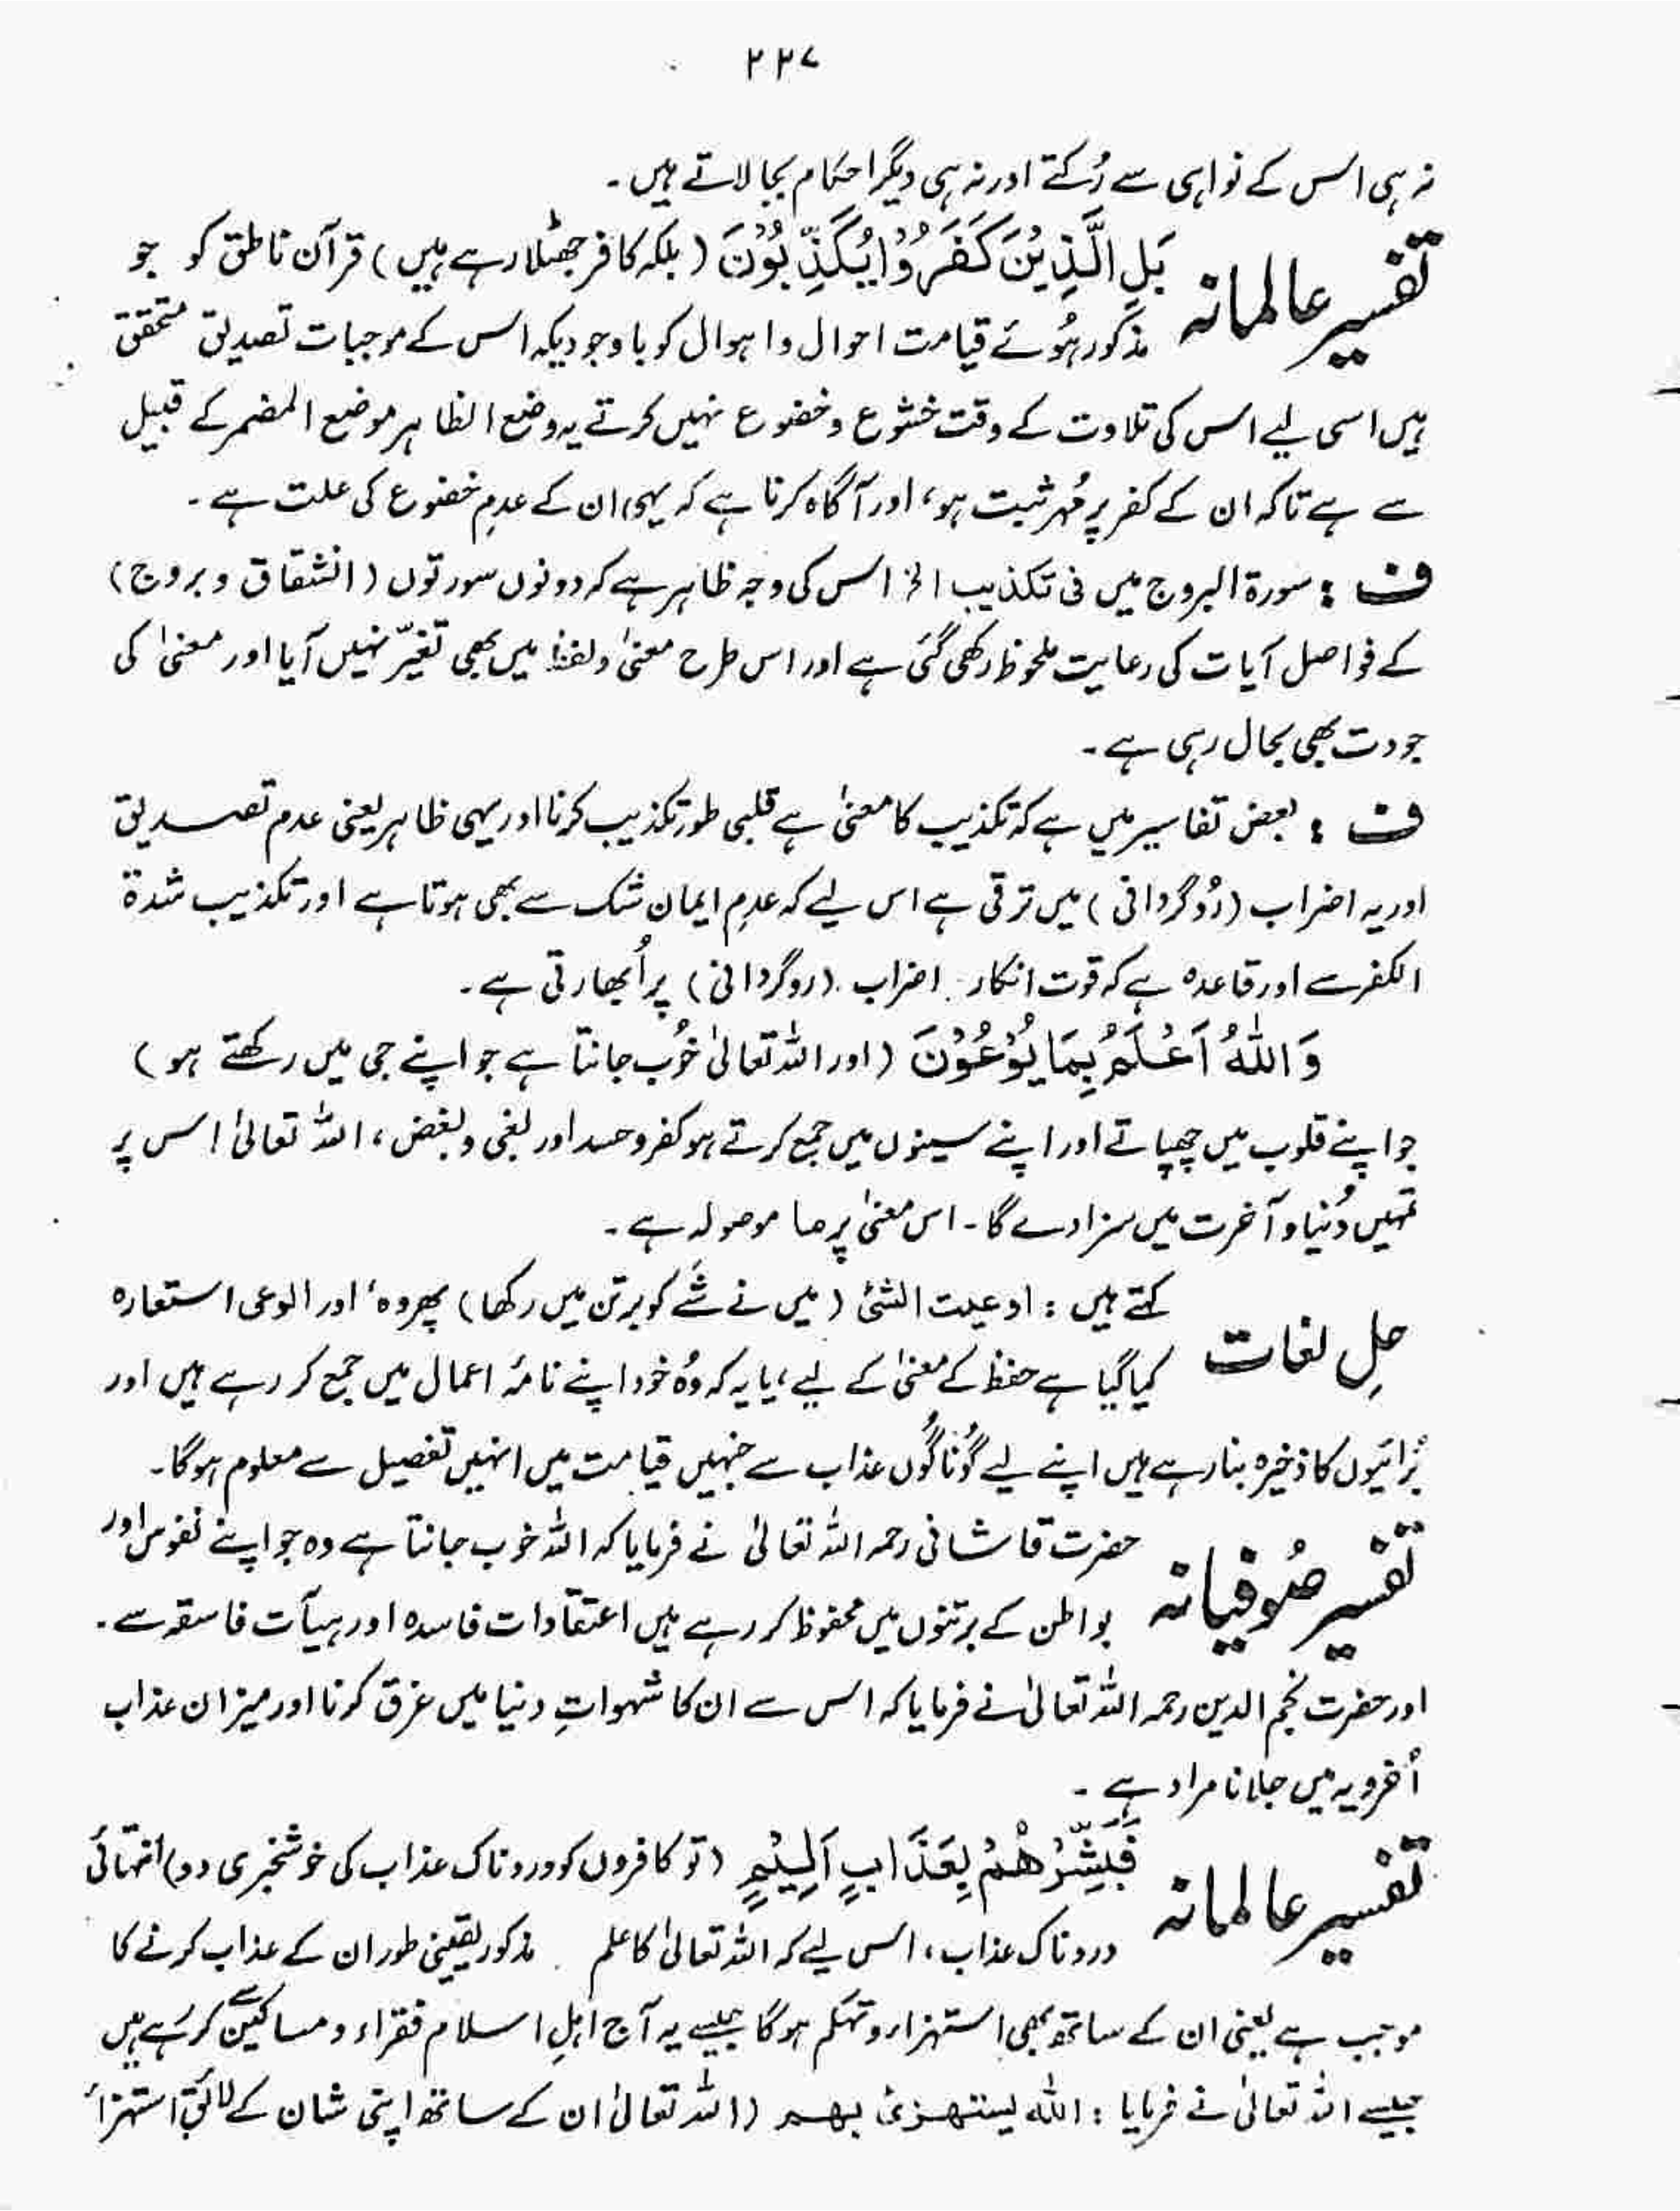 ۲۲۷
نہ ہی اس کے نواہی سے رُکتے اور نہ ہی دیگر احکام بجا لاتے ہیں۔
تفسیر عالمانہ
بَلِ الَّذِیْنَ کَفَرُوْا یُکَذِّبُوْنَ (بلکہ کافر جھٹلا رہے ہیں) قرآن ناطق کو جو
مذکور ہُوئے قیامت احوال و اہوال کو باوجودیکہ اس کے موجبات تصدیق متحقق
ہیں اسی لیے اس کی تلاوت کے وقت خشوع و خضوع نہیں کرتے یہ وضع الظاہر موضع المضمر کے قبیل
سے ہے تاکہ ان کے کفر پر مُہر ثبت ہو، اور آگاہ کرنا ہے کہ یہی ان کے عدمِ خضوع کی علت ہے۔
ف : سورۃ البروج میں فی تکذیب الخ اس کی وجہ ظاہر ہے کہ دونوں سورتوں (انشقاق و بروج)
کے فواصل آیات کی رعایت ملحوظ رکھی گئی ہے اور اس طرح معنیٰ و لفظ میں بھی تغیّر نہیں آیا اور معنیٰ کی
جودت بھی بحال رہی ہے۔
ف : بعض تفاسیر میں ہے کہ تکذیب کا معنیٰ ہے قلبی طور تکذیب کرنا اور یہی ظاہر یعنی عدم تصدیق
اور یہ اضراب (رُوگردانی) میں ترقی ہے اس لیے کہ عدمِ ایمان شک سے بھی ہوتا ہے اور تکذیب شدۃ
الکفر سے اور قاعدہ ہے کہ قوت انکار اضراب (روگردانی) پر اُبھارتی ہے۔
وَاللّٰہُ اَعْلَمُ بِمَا یُوْعُوْنَ (اور اللہ تعالیٰ خُوب جانتا ہے جو اپنے جی میں رکھتے ہو)
جو اپنے قلوب میں چھپاتے اور اپنے سینوں میں جمع کرتے ہو کفر و حسد اور بغی و بغض، اللہ تعالیٰ اس پر
تمہیں دُنیا و آخرت میں سزا دے گا۔ اس معنیٰ پر ما موصولہ ہے۔
حلِ لغات
کہتے ہیں : اوعیت الشئ (میں نے شَے کو برتن میں رکھا) پھر وہ اور الوعی استعارہ
کیا گیا ہے حفظ کے معنیٰ کے لیے، یا یہ کہ وُہ خود اپنے نامۂ اعمال میں جمع کر رہے ہیں اور
بُرائیوں کا ذخیرہ بنا رہے ہیں اپنے لیے گُوناگُوں عذاب سے جنہیں قیامت میں انہیں تفصیل سے معلوم ہوگا۔
تفسیر صُوفیانہ
حضرت قاشانی رحمہ اللہ تعالیٰ نے فرمایا کہ اللہ خوب جانتا ہے وہ جو اپنے نفوس اور
بواطن کے برتنوں میں محفوظ کر رہے ہیں اعتقادات فاسدہ اور ہیآت فاسقہ سے۔
اور حضرت نجم الدین رحمہ اللہ تعالیٰ نے فرمایا کہ اس سے ان کا شہواتِ دنیا میں غرق کرنا اور میزان عذاب
اُخرویہ میں جلانا مراد ہے۔
تفسیر عالمانہ
فَبَشِّرْھُمْ بِعَذَابٍ اَلِیْمٍ (تو کافروں کو دردناک عذاب کی خوشخبری دو) انتہائی
دردناک عذاب، اس لیے کہ اللہ تعالیٰ کا علم مذکور یقینی طور ان کے عذاب کرنے کا
موجب ہے یعنی ان کے ساتھ بھی استہزاء و تہکم ہوگا جیسے یہ آج اہلِ اسلام فقراء و مساکین سے کر رہے ہیں
جیسے اللہ تعالیٰ نے فرمایا : اللہ یستھزئ بھم (اللہ تعالیٰ ان کے ساتھ اپنی شان کے لائق استہزاء